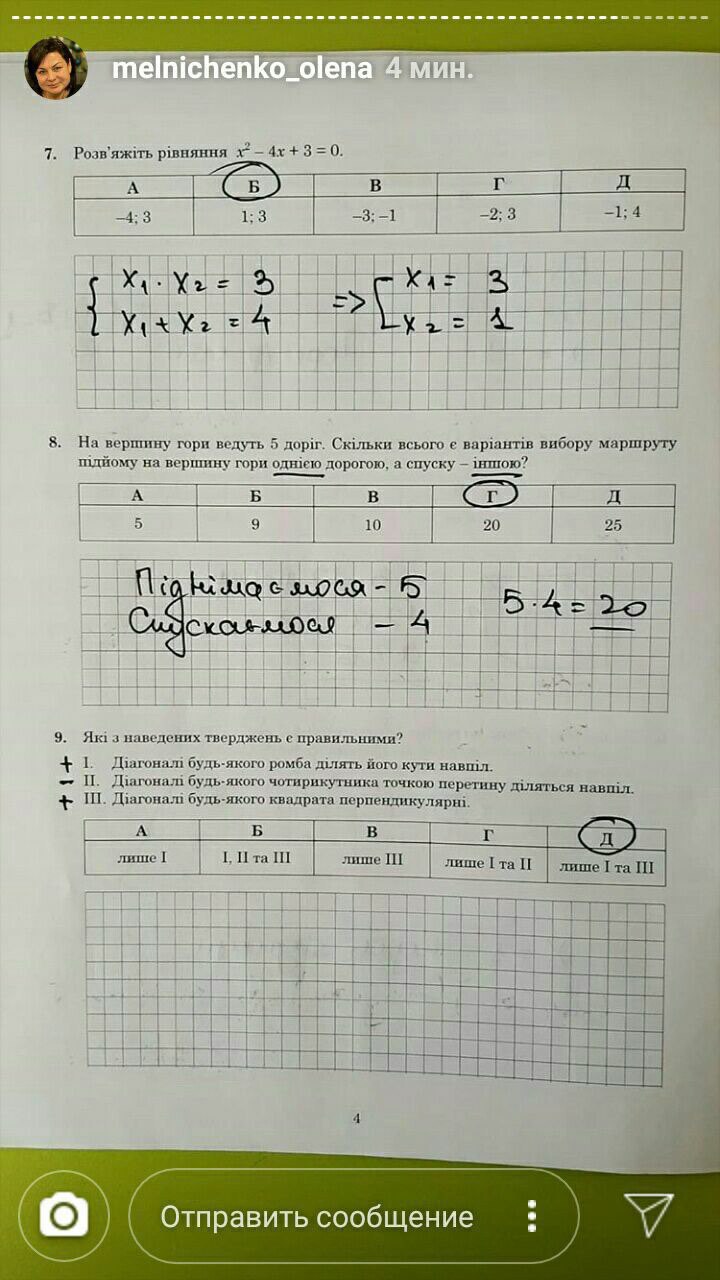 melnichenko_olena 4 мин.
7. Розв'яжіть рівняння x² – 4x + 3 = 0.
А Б В Г Д
–4; 3 1; 3 –3; –1 –2; 3 –1; 4
x₁ · x₂ = 3 => x₁ = 3
x₁ + x₂ = 4 x₂ = 1
8. На вершину гори ведуть 5 доріг. Скільки всього є варіантів вибору маршруту
підйому на вершину гори однією дорогою, а спуску – іншою?
А Б В Г Д
5 9 10 20 25
Піднімаємося - 5 5·4 = 20
Спускаємося - 4
9. Які з наведених тверджень є правильними?
+ I. Діагоналі будь-якого ромба ділять його кути навпіл.
– II. Діагоналі будь-якого чотирикутника точкою перетину діляться навпіл.
+ III. Діагоналі будь-якого квадрата перпендикулярні.
А Б В Г Д
лише I I, II та III лише III лише I та II лише I та III
4
Отправить сообщение